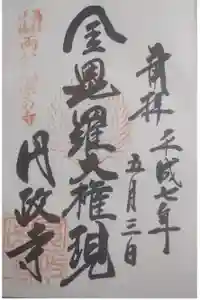 奉拝 平成七年
五月三日
金毘羅大権現
円政寺